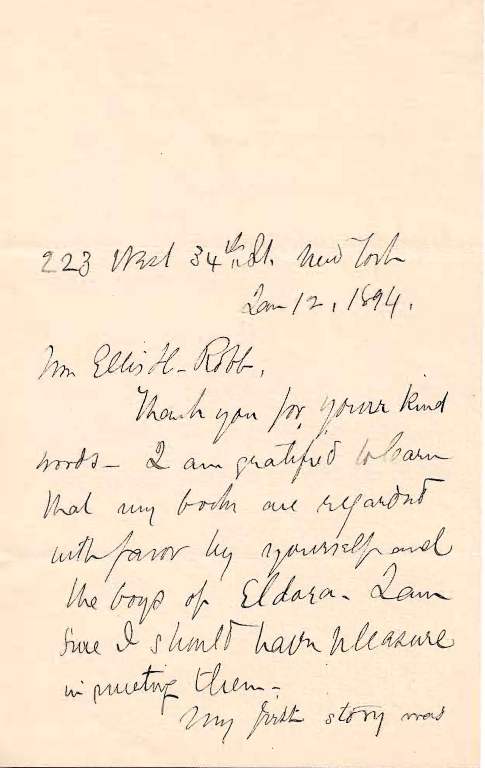 223 West 34th St. New York
Jan 12, 1894.
Ellis H. Robb,
Thank you for your kind
words - I am gratified to learn
that my books are regarded
with favor by yourself and
the boys of Eldora. I am
sure I should have pleasure
in meeting them.
My first story was